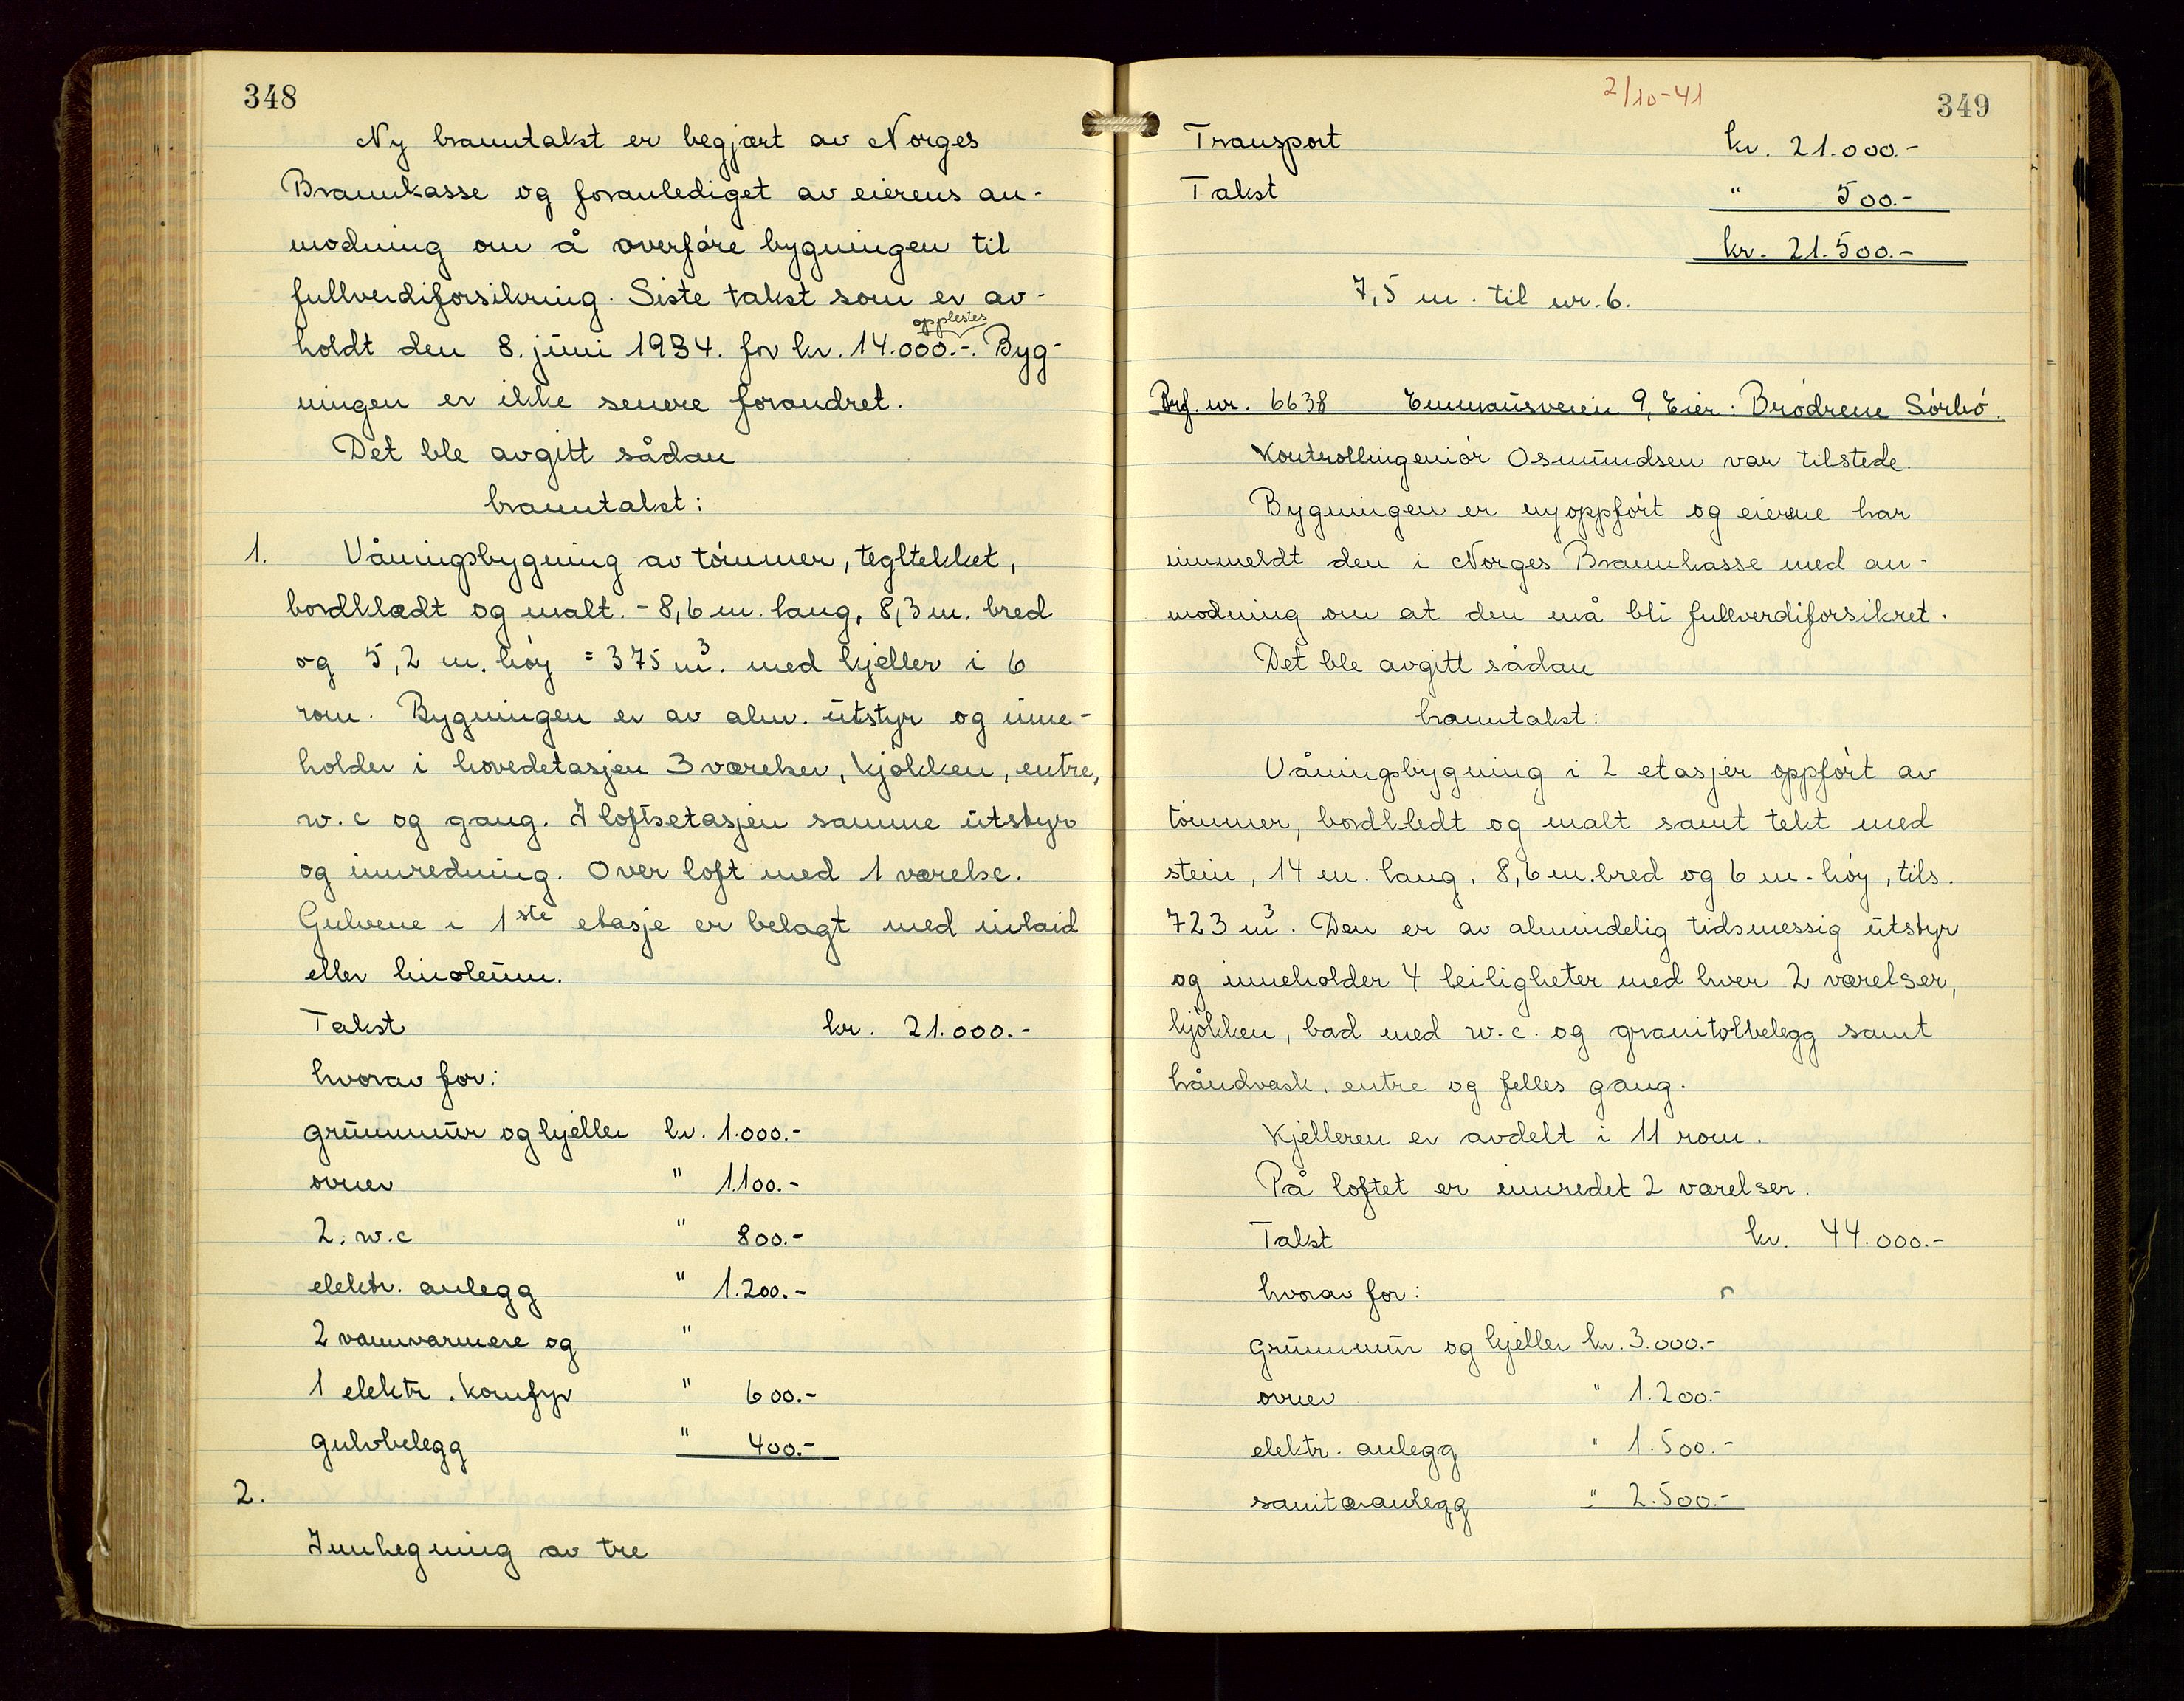 348
Ny branntakst er begjært av Norges
Brannkasse og foranlediget av eierens an-
modning om å overføre bygningen til
fullverdiforsikring. Siste takst som er av-
opplestes
holdt den 8. juni 1934. for kr. 14.000.-. Byg-
ningen er ikke senere forandret.
Det ble avgitt sådan
branntakst:
1. Våningsbygning av tømmer, tegltekket,
bordklædt og malt. - 8,6 m. lang, 8,3 m. bred
og 5,2 m. høy = 375 m³. med kjeller i 6
rom. Bygningen er av alm. utstyr og inne-
holder i hovedetasjen 3 værelser, kjøkken, entre,
w.c og gang. I loftsetasjen samme utstyr
og innredning. Over loft med 1 værelse.
Gulvene i 1ste etasje er belagt med inlaid
eller linoleum.
Takst kr. 21.000.-
hvorav for:
grunnmur og kjeller kr. 1.000.-
ovner " 1.100.-
2. w.c " 800.-
elektr. anlegg " 1.200.-
2 vannvarmere og "
1 elektr. komfyr " 600.-
gulvbelegg " 400.-
2.
Innhegning av tre
2/10-41
349
Transport kr. 21.000.-
Takst " 500.-
kr. 21.500.-
7,5 m. til nr. 6.
Brf. nr. 6638 Emmausveien 9, Eier: Brødrene Sørbø.
Kontrollingeniør Osmundsen var tilstede.
Bygningen er nyoppført og eierne har
innmeldt den i Norges Brannkasse med an-
modning om at den må bli fullverdiforsikret.
Det ble avgitt sådan
branntakst:
Våningsbygning i 2 etasjer oppført av
tømmer, bordkledt og malt samt tekt med
stein, 14 m. lang, 8,6 m. bred og 6 m. høy, tils.
723 m³. Den er av almindelig tidsmessig utstyr
og inneholder 4 leiligheter med hver 2 værelser,
kjøkken, bad med w.c. og granitolbelegg samt
håndvask, entre og felles gang.
Kjelleren er avdelt i 11 rom.
På loftet er innredet 2 værelser.
Takst kr. 44.000.-
hvorav for:
grunnmur og kjeller kr. 3.000.-
ovner " 1.200.-
elektr. anlegg " 1.500.-
sanitæranlegg " 2.500.-